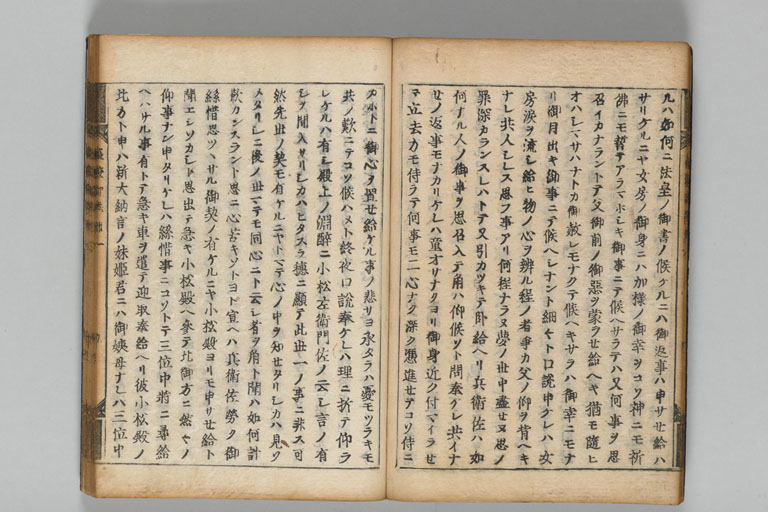 ルハ如何ニ法皇ノ御書ノ候ケルニハ御返事ハ申サセ給ハ
サリケルニヤ女房ノ御身ニハ加様ノ御幸ヲコソ神ニモ祈
佛ニモ誓テアラマホシキ御事ニテ候ヘサラテハ又何事ヲ思
召イカナラントテ父御前ノ御惡ヲ蒙ラせ給ヘキ猶モ隨ヒ
オハシマサハナトカ御赦レモナクテ候ヘキサラハ御幸ニモナ
リ御目出キ御事ニテ候ヘシナント細々トロ說申ケレハ女
房淚ヲ流シ給ヒ物ノ心ヲ辨ル程ノ者事カ父ノ仰ヲ背ヘキ
ナレ共人シレス思フ事アリ何程ナラヌ夢ノ世中盡せヌ思ノ
罪深カランスレハトテ又引カツキテ臥給ヘリ兵衛佐ハ如
何ナル人ノ御事ヲ思召入テ角ハ御候ソト問奉ケレ共イナ
せノ返事モナカリケレハ童オサナクヨリ御身近ク付マイラせ
テ立去方モ侍ラテ何事モ二心ナク深ク憑進せテコソ侍ニ
御心ヲ置せ給ケル事ノ悲サヨ永タラハ憂モツラキモ
共ノ歎ニテコソ候ハメト終夜口說奉ケレハ理ニ折テ仰ラ
レケルハ有シ殿上ノ淵醉ニ小松左衛門佐ノ云シ言ノ有
シヲ聞入サリシカハヒタスラ穗ニ顯テ此世一ノ事ニ非ス可
然先世ノ契モ有ケルニヤト云テ心ノ中ヲ知せタリシカハ見ソ
メタリシニ後ノ世マテモ同心ニト云シ者ヲ角ト聞ハ如何計
歎カンスラント思ニ心苦キソトヨト宣ヘハ兵衛佐勞ク御
絲惜思ツヽサル御契ノ有ケルニヤ小松殿ヨリモ申サせ給ト
聞エシソカシト思出テ急キ小松殿ヘ參テ此御方ニ然々ノ
仰事ナン申タリケレハ絲惜事ニコソトテ三位中將ニ尋給
ヘハサル事有トテ急キ車ヲ遣テ迎取奉給ヘリ彼小松殿ノ
北方ト申ハ新大納言ノ妹姬君ニハ御姨母ナレハ三位中